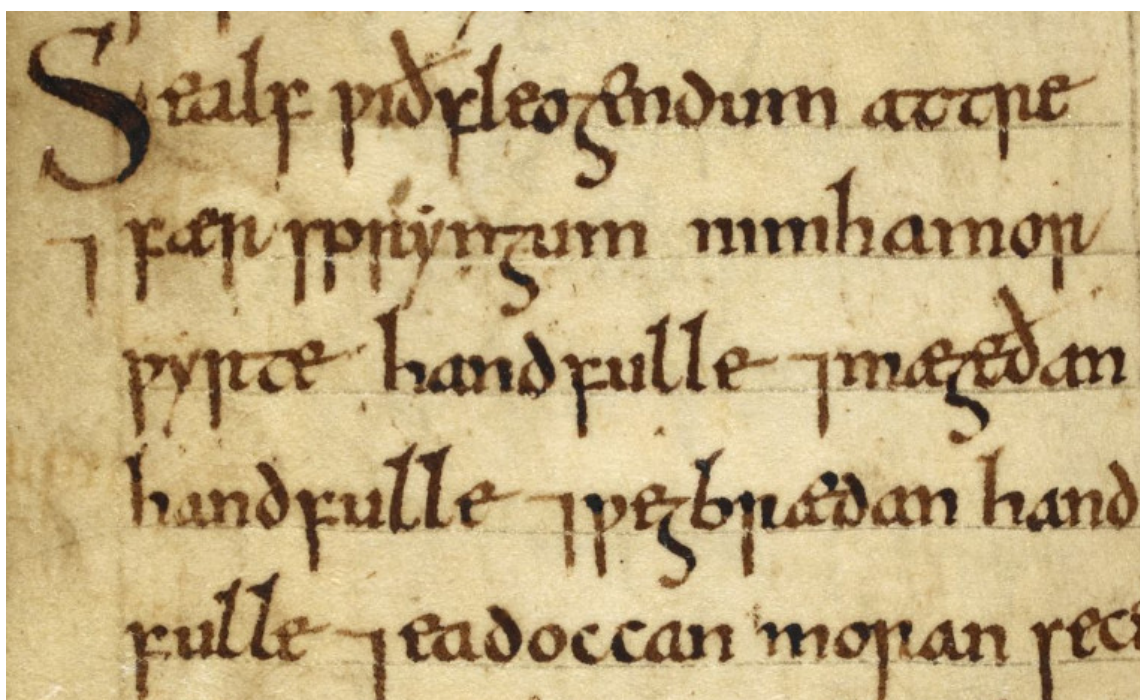 Sealf ƿiðfleogendum attre
⁊ fær spryngum nimhamor
ƿyrte handfulle ⁊mægeðan
handfulle ⁊ƿegbrædan hand
fulle ⁊eadoccan moran seci